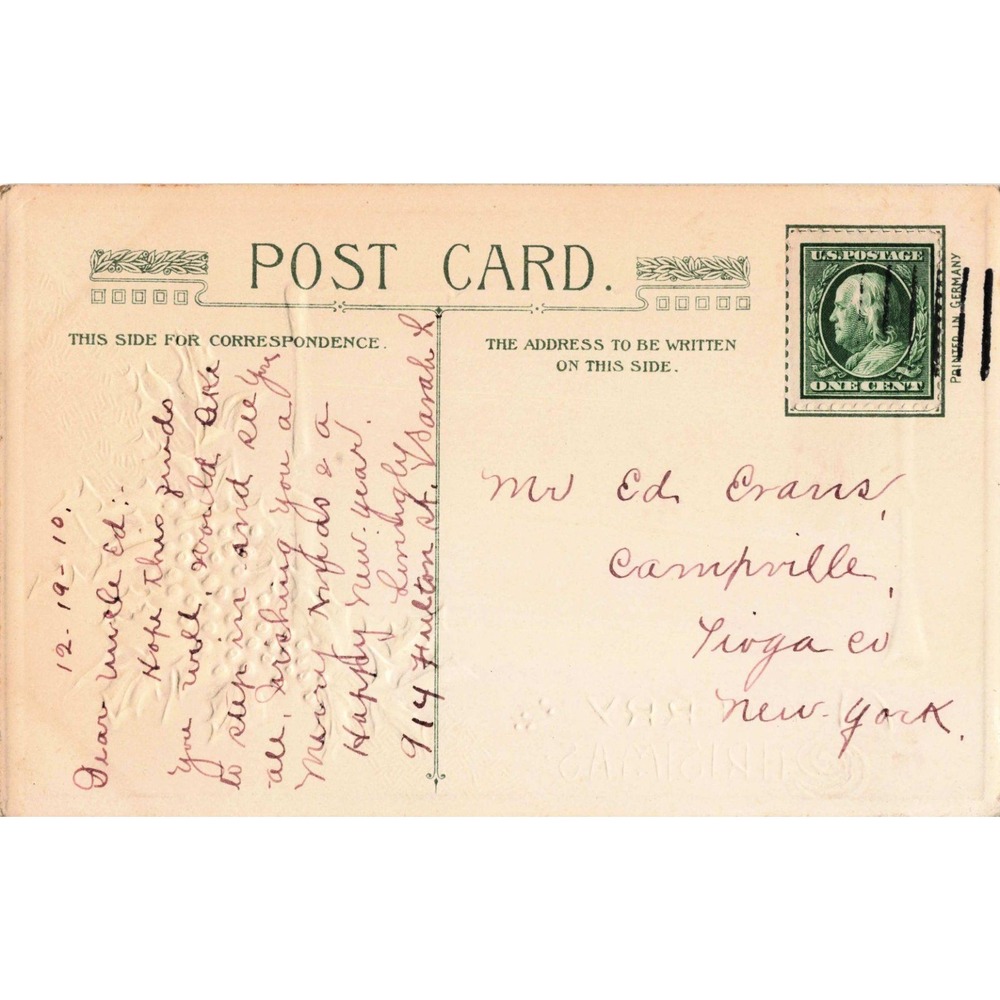 POST CARD.
THIS SIDE FOR CORRESPONDENCE.
THE ADDRESS TO BE WRITTEN
ON THIS SIDE.
U.S. POSTAGE
ONE CENT
PRINTED IN GERMANY
12-19-10.
Dear Uncle Ed:
Hope this finds
you well, would like
to step in and see you
all, wishing you a
Merry Xmas & a
Happy New-year.
Lovingly
Sarah L
914 Fulton St.
Mr Ed Evans,
Campville,
Tioga Co
New-York.
MERRY
CHRISTMAS